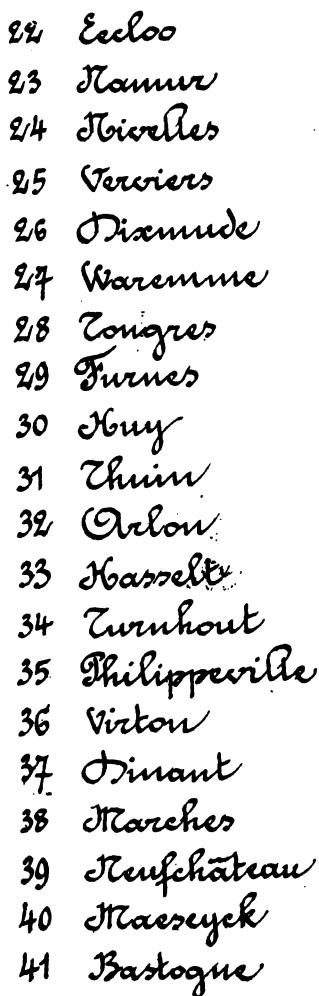 22 Eecloo
23 Namur
24 Nivelles
25 Verviers
26 Dixmude
27 Waremme
28 Tongres
29 Furnes
30 Huy
31 Thuin
32 Arlon
33 Hasselt
34 Turnhout
35 Philippeville
36 Virton
37 Dinant
38 Marches
39 Neufchâteau
40 Maeseyck
41 Bastogne